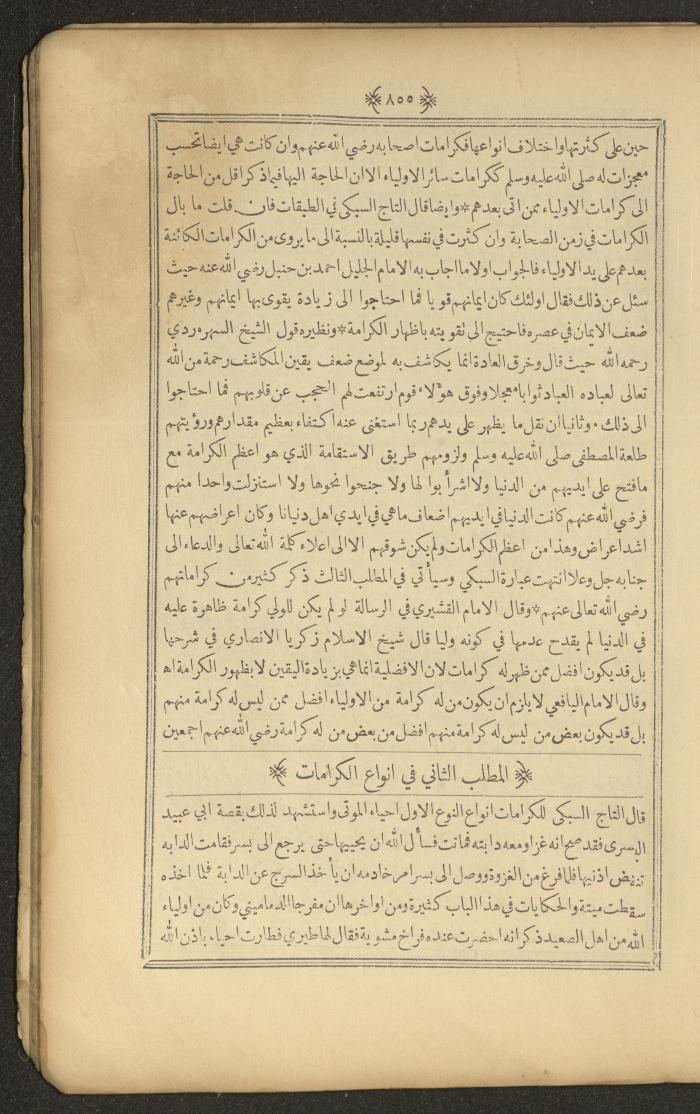 ﴿ ٨٥٥ ﴾
حين على كثرتها واختلاف انواعها فكرامات اصحابه رضي الله عنهم وان كانت هي ايضا تحسب
معجزات له صلى الله عليه وسلم ككرامات سائر الاولياء الا ان الحاجة اليها فيما ذكر اقل من الحاجة
الى كرامات الاولياء ممن اتى بعدهم * وايضا قال التاج السبكي في الطبقات فان قلت ما بال
الكرامات في زمن الصحابة وان كثرت في نفسها قليلة بالنسبة الى ما يروى من الكرامات الكائنة
بعدهم على يد الاولياء فالجواب اولا ما اجاب به الامام الجليل احمد بن حنبل رضي الله عنه حيث
سئل عن ذلك فقال اولئك كان ايمانهم قويا فما احتاجوا الى زيادة يقوى بها ايمانهم وغيرهم
ضعف الايمان في عصره فاحتيج الى تقويته باظهار الكرامة * ونظيره قول الشيخ السهروردي
رحمه الله حيث قال وخرق العادة انما يكاشف به لموضع ضعف يقين المكاشف رحمة من الله
تعالى لعباده العباد ثوابا معجلا وفوق هؤلاء قوم ارتفعت لهم الحجب عن قلوبهم فما احتاجوا
الى ذلك . وثانيا ان نقل ما يظهر على يدهم ربما استغنى عنه اكتفاء بعظيم مقدارهم ورؤيتهم
طلعة المصطفى صلى الله عليه وسلم ولزومهم طريق الاستقامة الذي هو اعظم الكرامة مع
ما فتح على ايديهم من الدنيا ولا اشرأبوا لها ولا جنحوا نحوها ولا استنزلت واحدا منهم
فرضي الله عنهم كانت الدنيا في ايديهم اضعاف ما هي في ايدي اهل دنيانا وكان اعراضهم عنها
اشد اعراض وهذا من اعظم الكرامات ولم يكن شوقهم الا الى اعلاء كلمة الله تعالى والدعاء الى
جنابه جل وعلا انتهت عبارة السبكي وسيأتي في المطلب الثالث ذكر كثير من كراماتهم
رضي الله تعالى عنهم * وقال الامام القشيري في الرسالة لو لم يكن للولي كرامة ظاهرة عليه
في الدنيا لم يقدح عدمها في كونه وليا قال شيخ الاسلام زكريا الانصاري في شرحها
بل قد يكون افضل ممن ظهر له كرامات لان الافضلية انما هي بزيادة اليقين لا بظهور الكرامة اه
وقال الامام اليافعي لا يلزم ان يكون من له كرامة من الاولياء افضل ممن ليس له كرامة منهم
بل قد يكون بعض من ليس له كرامة منهم افضل من بعض من له كرامة رضي الله عنهم اجمعين
﴿ المطلب الثاني في انواع الكرامات ﴾
قال التاج السبكي للكرامات انواع النوع الاول احياء الموتى واستشهد لذلك بقصة ابي عبيد
البسرى فقد صح انه غزا ومعه دابته فماتت فسأل الله ان يحييها حتى يرجع الى بسر فقامت الدابه
تنفض اذنيها فلما فرغ من الغزوة ووصل الى بسر امر خادمه ان يأخذ السرج عن الدابة فلما اخذه
سقطت ميتة والحكايات في هذا الباب كثيرة ومن اواخرها ان مفرجا الدماميني وكان من اولياء
الله من اهل الصعيد ذكر انه احضرت عنده فراخ مشوية فقال لها طيري فطارت احياء باذن الله